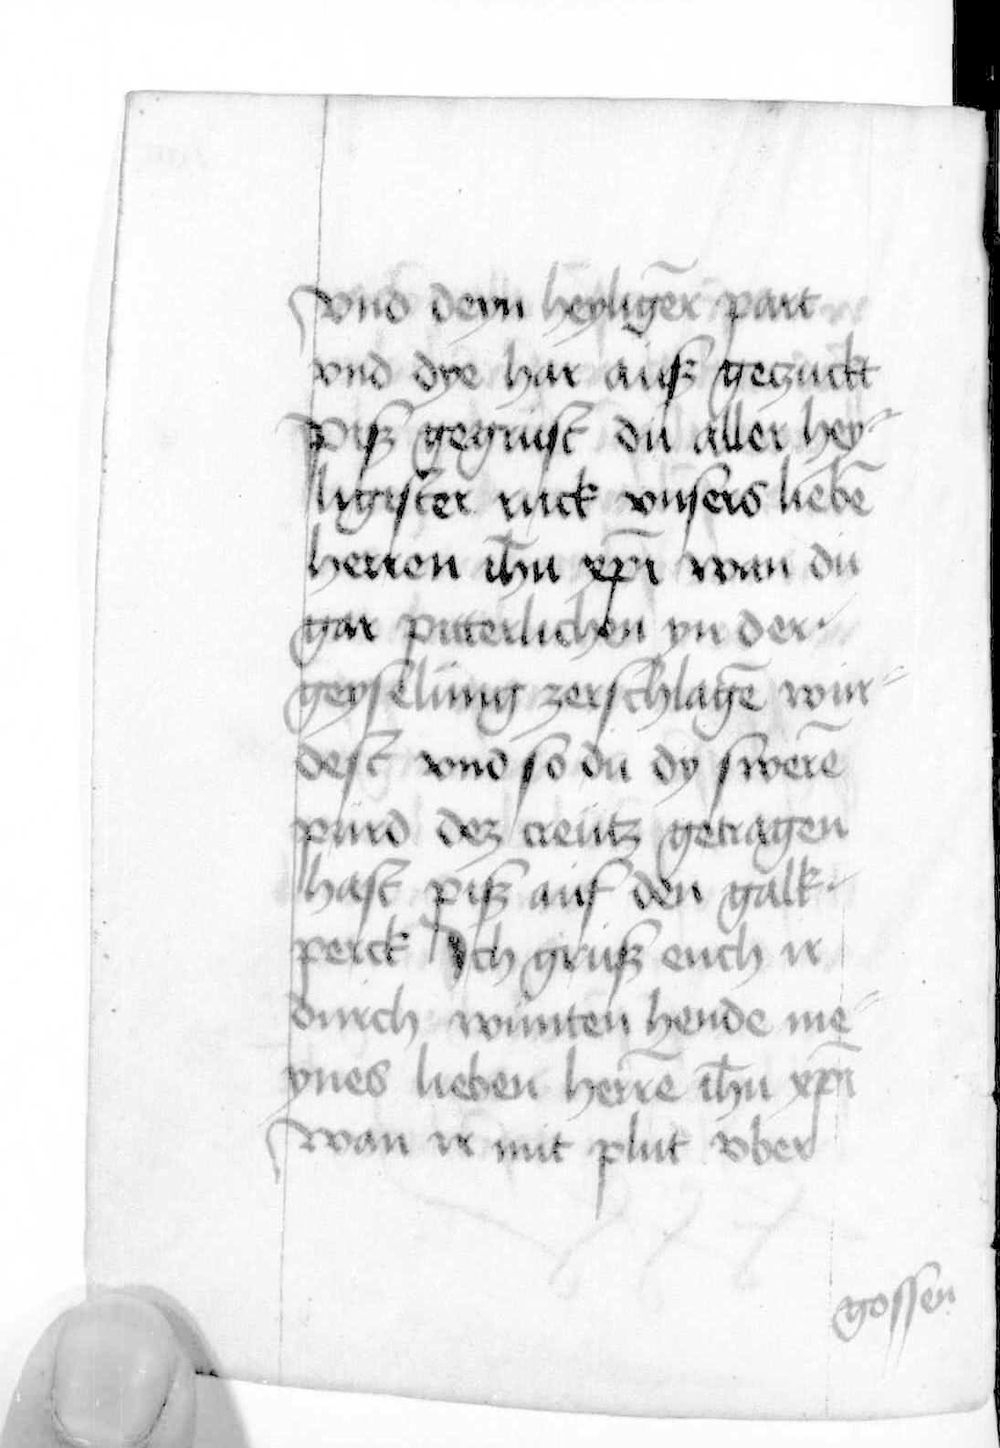 vnd deyn heyligēr part
vnd dye har auß geczuckt
piß gegrüst du aller hey-
ligister ruck vnsers liebē
herren ih̄u xp̄i wan du
gar pitterlichen yn der
geyselung zerschlagē wur-
dest vnd so du dy swerē
purd dez creutz getragen
hast piß auf den galk-
perck Ich gruß euch ir
durch wunten hende me-
ynes lieben herrē ih̄u xp̄i
wan ir mit plut vber
gossen